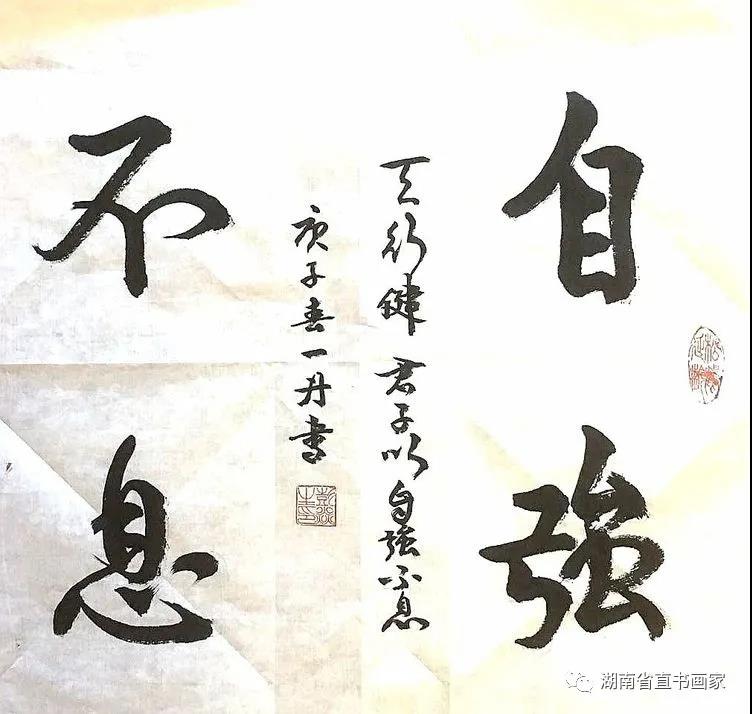 自強
天行鍵 君子以自強不息
庚子春一丹書
不息
湖南省直书画家